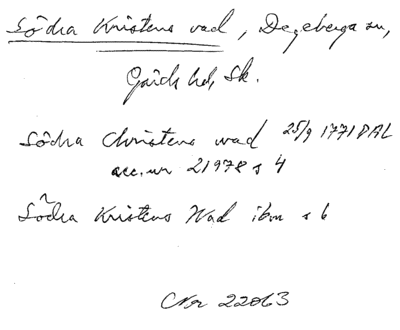 Södra Kristens vad, Degeberga sn,
Gärds hd, Sk.
Södra Christens wad 25/9 1771 PRL
acc. nr 21978 s 4
Södra Kristens Wad ibm s 6
CNr 22063